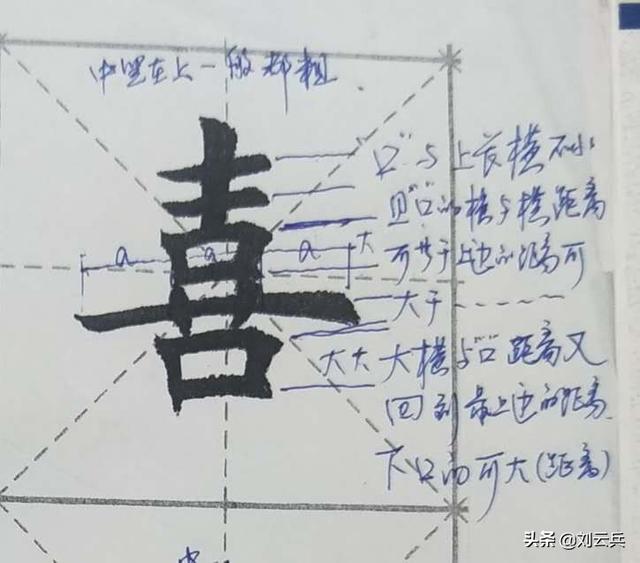 中竖在上一般都粗
喜
"口"与上长横不小
且"口"的横与横距离
a a a 大
可等于上边的距离可
大于------
大大 大横与"口"距离又
回到最上边的距离
下口的可大(距离)
头条 @刘云兵